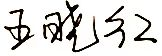 王晓红